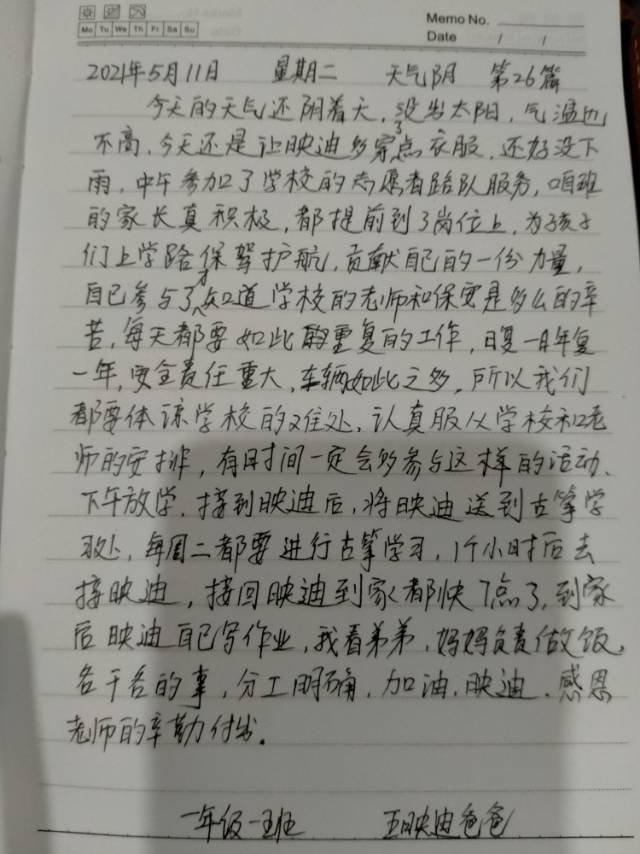 Memo No.
Mo Tu We Th Fr Sa Su
Date / /
2021年5月11日 星期二 天气阴 第26篇
今天的天气还阴着天,没出太阳,气温也
不高,今天还是让映迪多穿了点衣服,还好没下
雨,中午参加了学校的志愿者路队服务,咱班
的家长真积极,都提前到了岗位上,为孩子
们上学路保驾护航,贡献自己的一份力量,
自己参与了才知道学校的老师和保安是多么的辛
苦,每天都要如此的重复的工作,日复一日年复
一年,安全责任重大,车辆如此之多,所以我们
都要体谅学校的难处,认真服从学校和老
师的安排,有时间一定会多参与这样的活动、
下午放学,接到映迪后,将映迪送到古筝学
习处,每周二都要进行古筝学习,1个小时后去
接映迪,接回映迪到家都快7点了,到家
后映迪自己写作业,我看弟弟,妈妈负责做饭,
各干各的事,分工明确,加油,映迪、感恩
老师的辛勤付出。
一年级一班 映迪爸爸